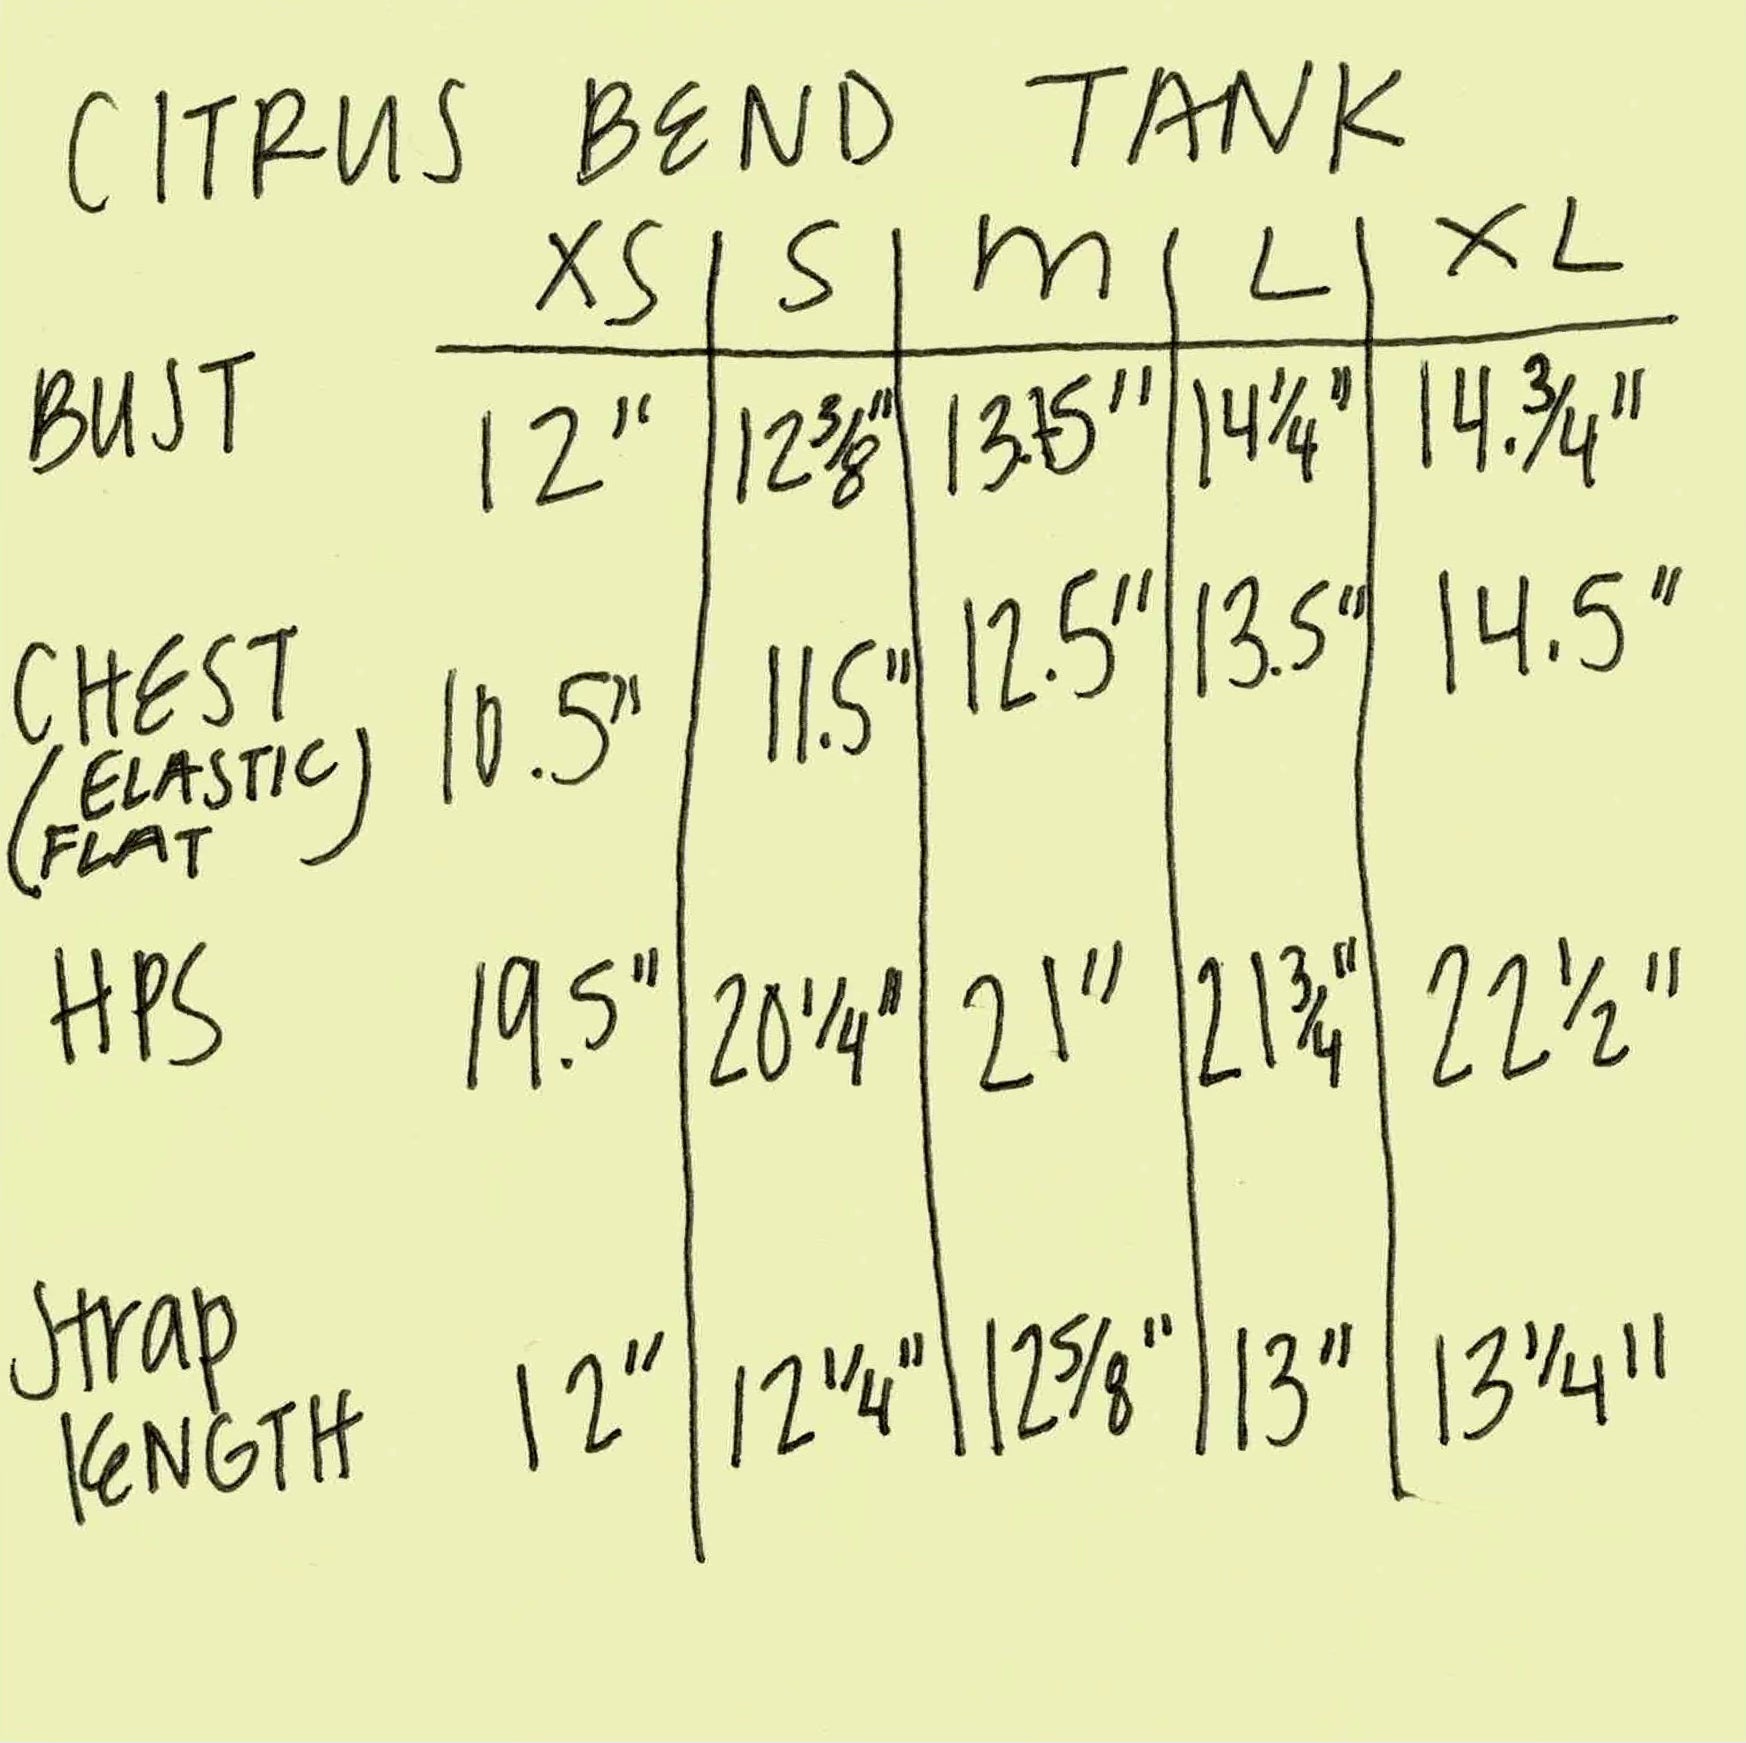 CITRUS BEND TANK
XS S M L XL
BUST 12" 12 3/8" 14 1/4" 14.3/4"
CHEST 10.5" 11.5" 12.5" 13.5" 14.5"
(ELASTIC)
FLAT
HPS 19.5" 20 1/4" 21" 21 3/4" 22 1/2"
Strap
LENGTH 12" 12 1/4" 12 5/8" 13" 13 1/4"